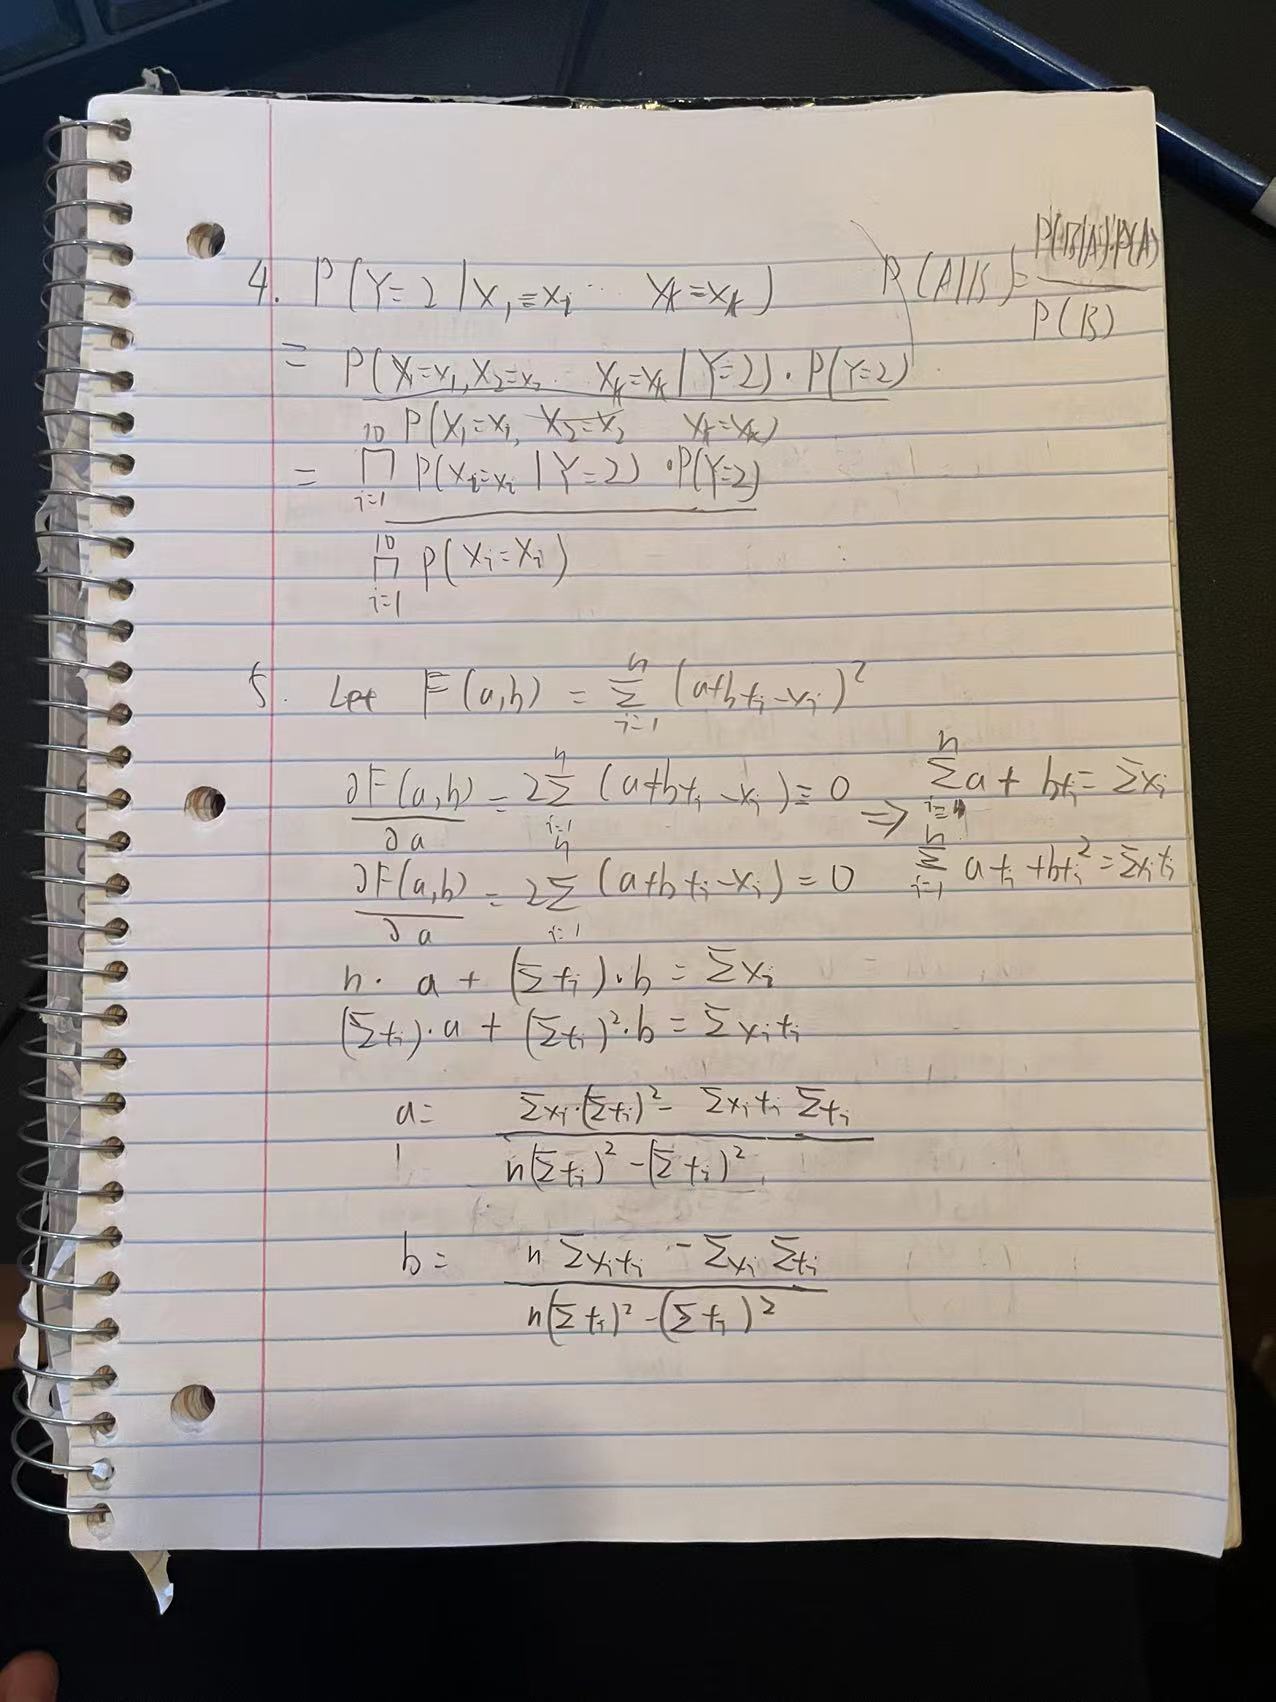 4. P(Y=2 | X₁=x₁ ... Xₖ=xₖ)
P(A|B)= P(B|A)·P(A) / P(B)
= P(X₁=x₁, X₂=x₂ ... Xₖ=xₖ | Y=2) · P(Y=2) / P(X₁=x₁, X₂=x₂ Xₖ=xₖ)
= ∏_{i=1}^{10} P(Xᵢ=xᵢ | Y=2) · P(Y=2) / ∏_{i=1}^{10} P(Xᵢ=xᵢ)
5. Let F(a,b) = Σ_{i=1}^{n} (a+btᵢ-xᵢ)²
∂F(a,b)/∂a = 2Σ_{i=1}^{n} (a+btᵢ-xᵢ)=0 ⇒ Σ_{i=1}^{n} a + btᵢ = Σxᵢ
∂F(a,b)/∂a = 2Σ_{i=1}^{n} (a+btᵢ-xᵢ)=0 Σ_{i=1}^{n} atᵢ+btᵢ²=Σxᵢtᵢ
n· a + (Σtᵢ)·b = Σxᵢ
(Σtᵢ)·a + (Σtᵢ)²·b = Σxᵢtᵢ
a= Σxᵢ·(Σtᵢ)² - Σxᵢtᵢ Σtᵢ / n(Σtᵢ)² -(Σtᵢ)²
b= n Σxᵢtᵢ - Σxᵢ Σtᵢ / n(Σtᵢ)² -(Σtᵢ)²